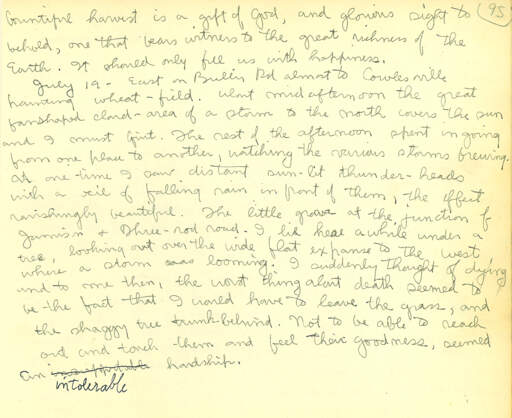 bountiful harvest is a gift of God, and glorious sight to
95
behold, one that bears witness to the great richness of the
Earth. It should only fill us with happiness.
July 19 - East on Bullis Rd almost to Cowlesville
painting wheat-field. About midafternoon the great
fanshaped cloud-area of a storm to the north covers the sun
and I must quit. The rest of the afternoon spent in going
from one place to another, watching the various storms brewing.
At one-time I saw distant sun-lit thunder-heads
with a veil of falling rain in front of them, the effect
ravishingly beautiful. The little grove at the junction of
Jamison & Three-rod road. I lie here awhile under a
tree, looking out over the wide flat expanse to the west
where a storm was looming. I suddenly thought of dying
and to me then, the worst thing about death seemed to
be the fact that I would have to leave the grass, and
the shaggy tree trunk behind. Not to be able to reach
out and touch them and feel their goodness, seemed
an hardship.
intolerable